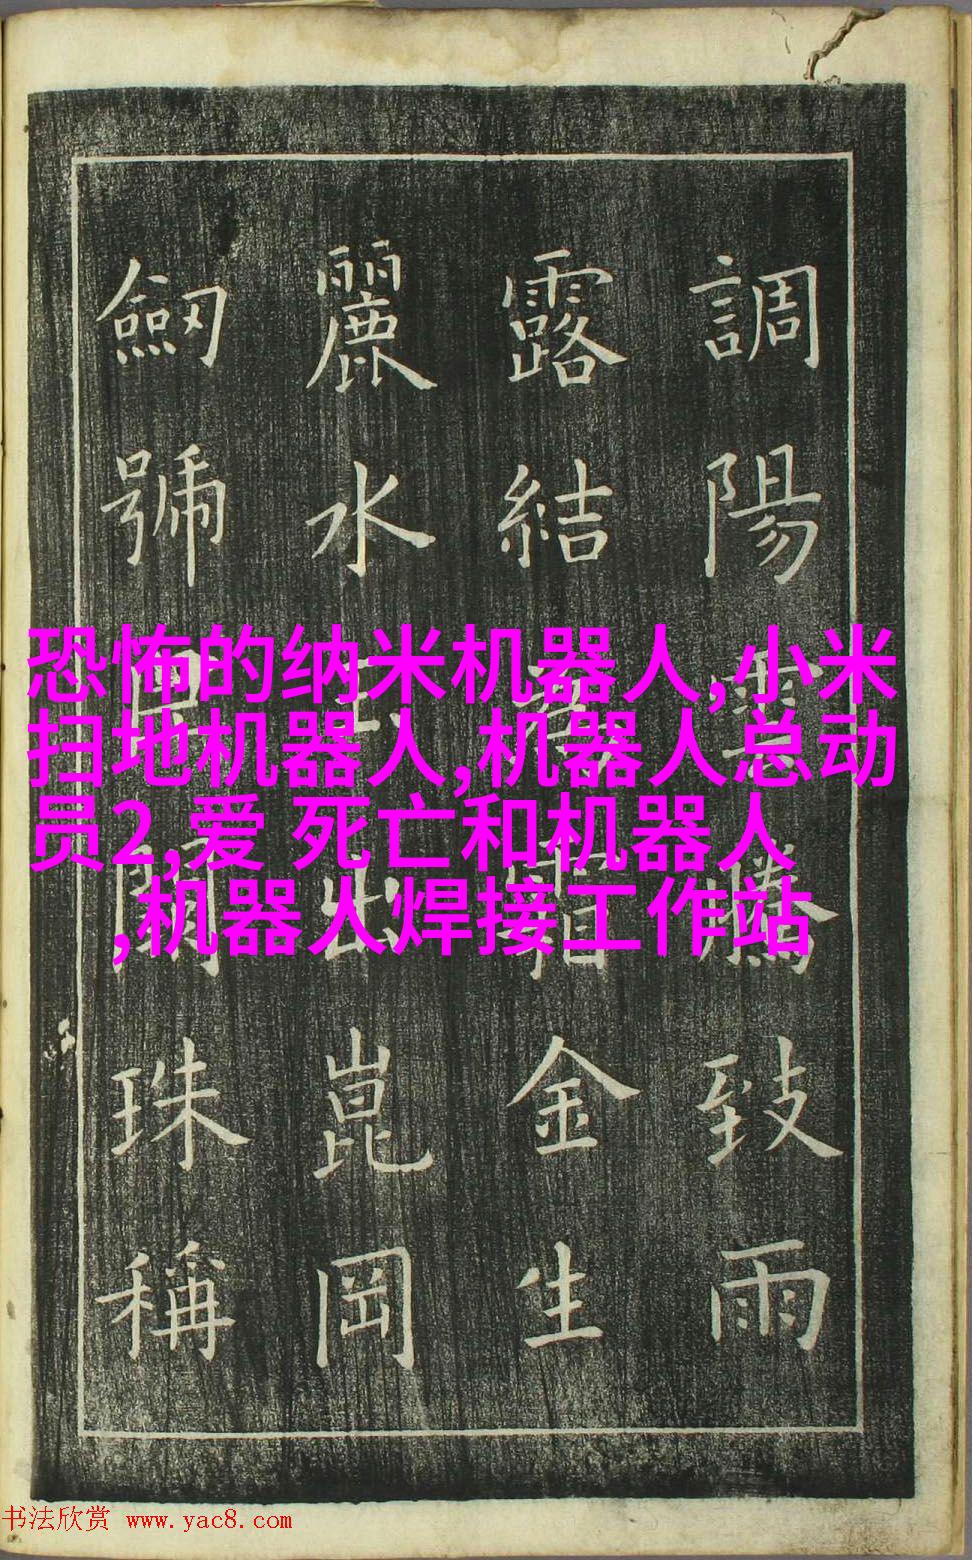 調陽雲騰致雨
露結爲霜金生
麗水玉出崑岡
劒號巨闕珠稱
恐怖的纳米机器人,小米
扫地机器人,机器人总动
员2,爱 死亡和机器人
,机器人焊接工作站
书法欣赏 www.yac8.com